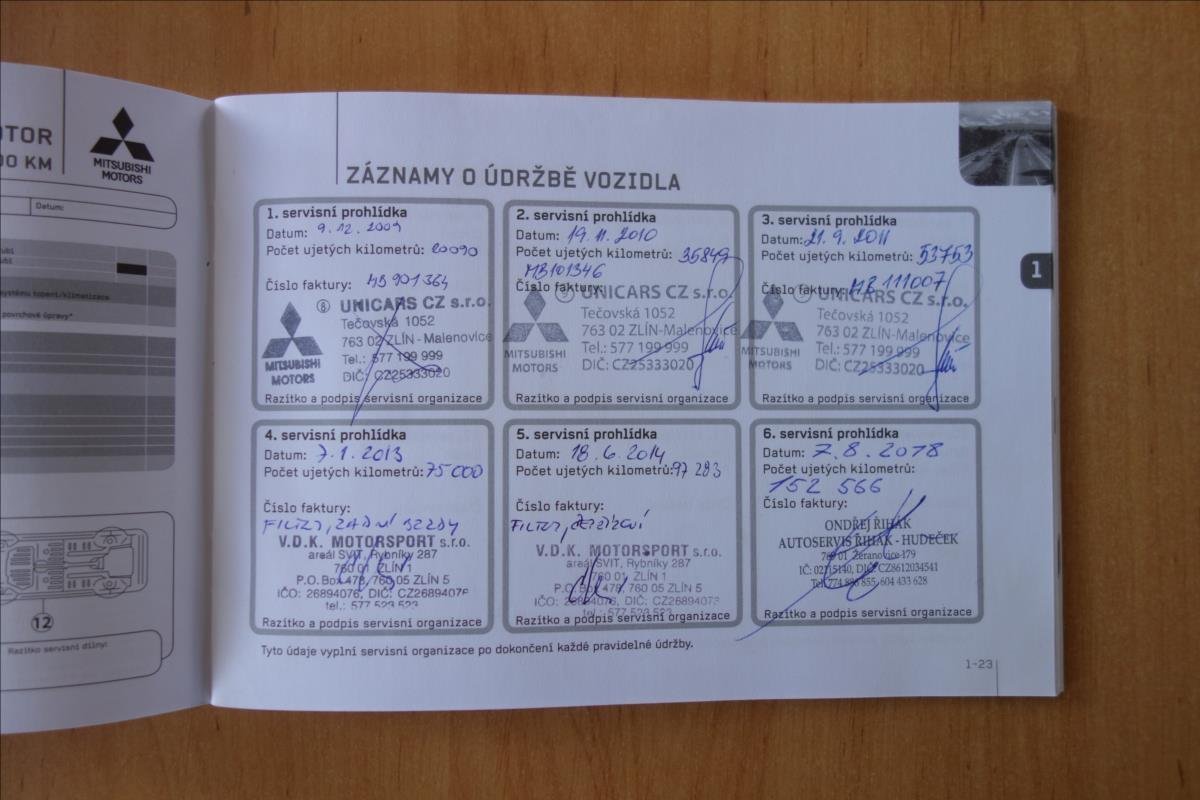 OTOR
00 KM
MITSUBISHI
MOTORS
Datum:
systému topení/klimatizace
povrchové úpravy*
12
Razítko servisní dílny:
ZÁZNAMY O ÚDRŽBĚ VOZIDLA
1
1. servisní prohlídka
Datum: 9.12.2009
Počet ujetých kilometrů: 20090
Číslo faktury: MB901364
8 UNICARS CZ s.r.o.
Tečovská 1052
763 02 ZLÍN-Malenovice
Tel.: 577 199 999
DIČ: CZ25333020
MITSUBISHI
MOTORS
Razítko a podpis servisní organizace
2. servisní prohlídka
Datum: 19.11.2010
Počet ujetých kilometrů: 35849
MB101346
Číslo faktury:
9 UNICARS CZ s.r.o.
Tečovská 1052
763 02 ZLÍN-Malenovice
Tel.: 577 199 999
DIČ: CZ25333020
MITSUBISHI
MOTORS
Razítko a podpis servisní organizace
3. servisní prohlídka
Datum: 21.9.2011
Počet ujetých kilometrů: 53753
Číslo faktury: MB 111007
9 UNICARS CZ s.r.o.
Tečovská 1052
763 02 ZLÍN-Malenovice
Tel.: 577 199 999
DIČ: CZ25333020
MITSUBISHI
MOTORS
Razítko a podpis servisní organizace
4. servisní prohlídka
Datum: 7.1.2013
Počet ujetých kilometrů: 75000
Číslo faktury:
FILTRY, ZADNÍ BRZDY
V.D.K. MOTORSPORT s.r.o.
areál SVIT, Rybníky 287
760 01 ZLÍN 1
P.O. Box 478, 760 05 ZLÍN 5
IČO: 26894076, DIČ: CZ26894076
tel.: 577 523 523
Razítko a podpis servisní organizace
5. servisní prohlídka
Datum: 18.6.2014
Počet ujetých kilometrů: 97283
Číslo faktury:
FILTRY,
V.D.K. MOTORSPORT s.r.o.
areál SVIT, Rybníky 287
760 01 ZLÍN 1
P.O. Box 478, 760 05 ZLÍN 5
IČO: 26894076, DIČ: CZ26894076
tel.: 577 523 523
Razítko a podpis servisní organizace
6. servisní prohlídka
Datum: 7.8.2018
Počet ujetých kilometrů:
152 566
Číslo faktury:
ONDŘEJ ŘIHÁK
AUTOSERVIS ŘIHÁK - HUDEČEK
769 01 Žeranovice 179
IČ: 02715140, DIČ: CZ8612034541
Tel. 774 896 855, 604 433 628
Razítko a podpis servisní organizace
Tyto údaje vyplní servisní organizace po dokončení každé pravidelné údržby.
1-23